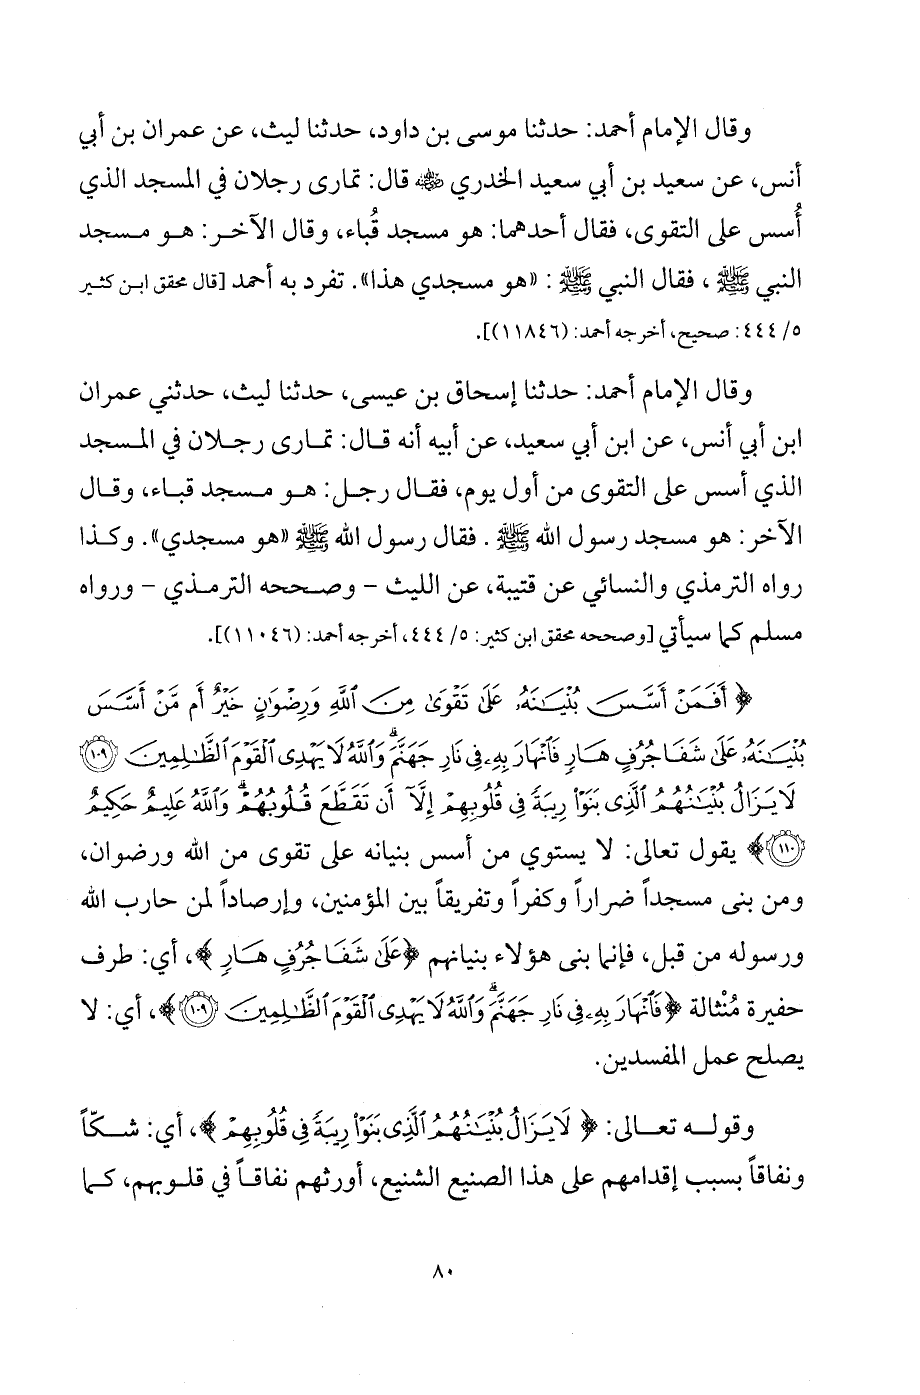 وقال الإمام أحمد: حدثنا موسى بن داود، حدثنا ليث، عن عمران بن أبي
أنس، عن سعيد بن أبي سعيد الخدري ﵁ قال: تمارى رجلان في المسجد الذي
أُسس على التقوى، فقال أحدهما: هو مسجد قُباء، وقال الآخر: هو مسجد
النبي ﷺ، فقال النبي ﷺ: «هو مسجدي هذا». تفرد به أحمد [قال محقق ابن كثير
٥/ ٤٤٤: صحيح، أخرجه أحمد: (١١٨٤٦)].
وقال الإمام أحمد: حدثنا إسحاق بن عيسى، حدثنا ليث، حدثني عمران
ابن أبي أنس، عن ابن أبي سعيد، عن أبيه أنه قال: تمارى رجلان في المسجد
الذي أسس على التقوى من أول يوم، فقال رجل: هو مسجد قباء، وقال
الآخر: هو مسجد رسول الله ﷺ. فقال رسول الله ﷺ «هو مسجدي». وكذا
رواه الترمذي والنسائي عن قتيبة، عن الليث - وصححه الترمذي - ورواه
مسلم كما سيأتي [وصححه محقق ابن كثير: ٥/ ٤٤٤، أخرجه أحمد: (١١٠٤٦)].
﴿أَفَمَنْ أَسَّسَ بُنْيَٰنَهُۥ عَلَىٰ تَقْوَىٰ مِنَ ٱللَّهِ وَرِضْوَٰنٍ خَيْرٌ أَم مَّنْ أَسَّسَ
بُنْيَٰنَهُۥ عَلَىٰ شَفَا جُرُفٍ هَارٍ فَٱنْهَارَ بِهِۦ فِى نَارِ جَهَنَّمَ ۗ وَٱللَّهُ لَا يَهْدِى ٱلْقَوْمَ ٱلظَّٰلِمِينَ ١٠٩
لَا يَزَالُ بُنْيَٰنُهُمُ ٱلَّذِى بَنَوْا۟ رِيبَةً فِى قُلُوبِهِمْ إِلَّآ أَن تَقَطَّعَ قُلُوبُهُمْ ۗ وَٱللَّهُ عَلِيمٌ حَكِيمٌ
١١٠﴾ يقول تعالى: لا يستوي من أسس بنيانه على تقوى من الله ورضوان،
ومن بنى مسجداً ضراراً وكفراً وتفريقاً بين المؤمنين، وإرصاداً لمن حارب الله
ورسوله من قبل، فإنما بنى هؤلاء بنيانهم ﴿عَلَىٰ شَفَا جُرُفٍ هَارٍ﴾، أي: طرف
حفيرة مُنْثالة ﴿فَٱنْهَارَ بِهِۦ فِى نَارِ جَهَنَّمَ ۗ وَٱللَّهُ لَا يَهْدِى ٱلْقَوْمَ ٱلظَّٰلِمِينَ ١٠٩﴾، أي: لا
يصلح عمل المفسدين.
وقوله تعالى: ﴿لَا يَزَالُ بُنْيَٰنُهُمُ ٱلَّذِى بَنَوْا۟ رِيبَةً فِى قُلُوبِهِمْ﴾، أي: شكّاً
ونفاقاً بسبب إقدامهم على هذا الصنيع الشنيع، أورثهم نفاقاً في قلوبهم، كما
٨٠